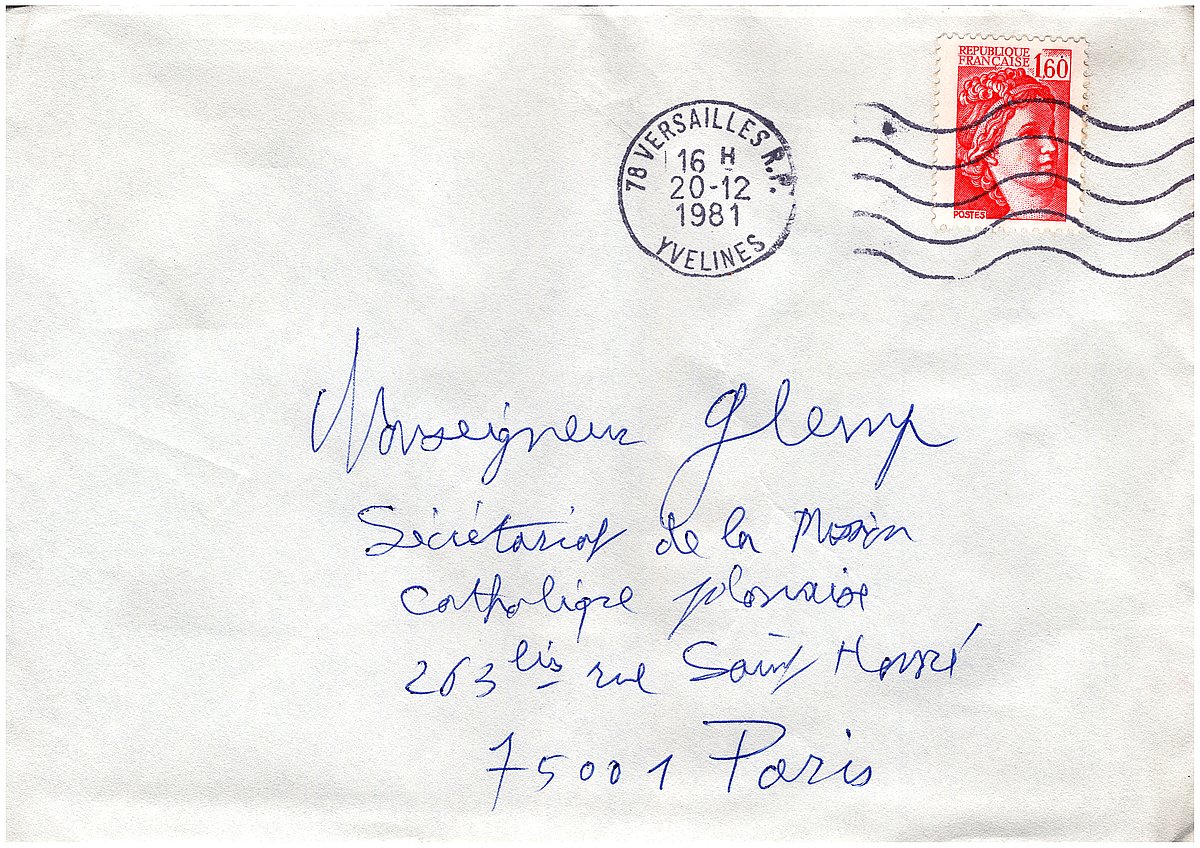 REPUBLIQUE
FRANÇAISE 1,60
POSTES
78 VERSAILLES R.P.
16 H
20-12
1981
YVELINES
Monseigneur Glemp
Sécrétariat de la Mission
Catholique polonaise
263 bis rue Saint Honoré
75001 Paris